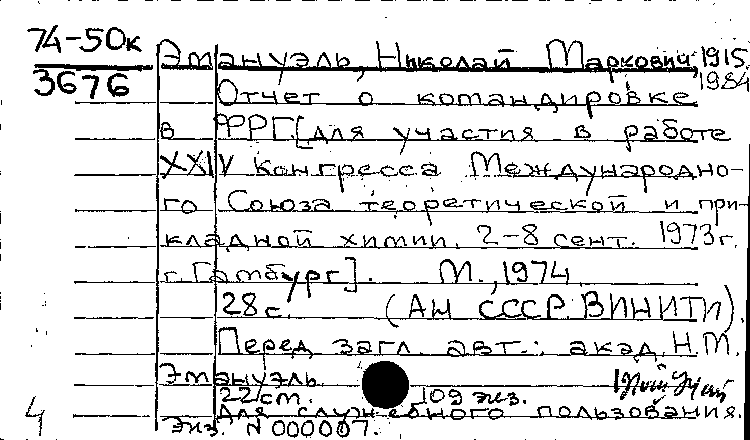 74-50к
3676
Эмануэль, Николай Маркович, 1915
1984
Отчет о командировке
в ФРГ. [для участия в работе
XXIV Конгресса Международно-
го Союза теоретической и при-
кладной химии. 2-8 сент. 1973г.
г. Гамбург]. М., 1974
28 с. (АН СССР. ВИНИТИ).
Перед загл. авт.: акад. Н.М.
Эмануэль.
22 см. 109 экз.
Для служебного пользования.
Экз. N 000007.
4